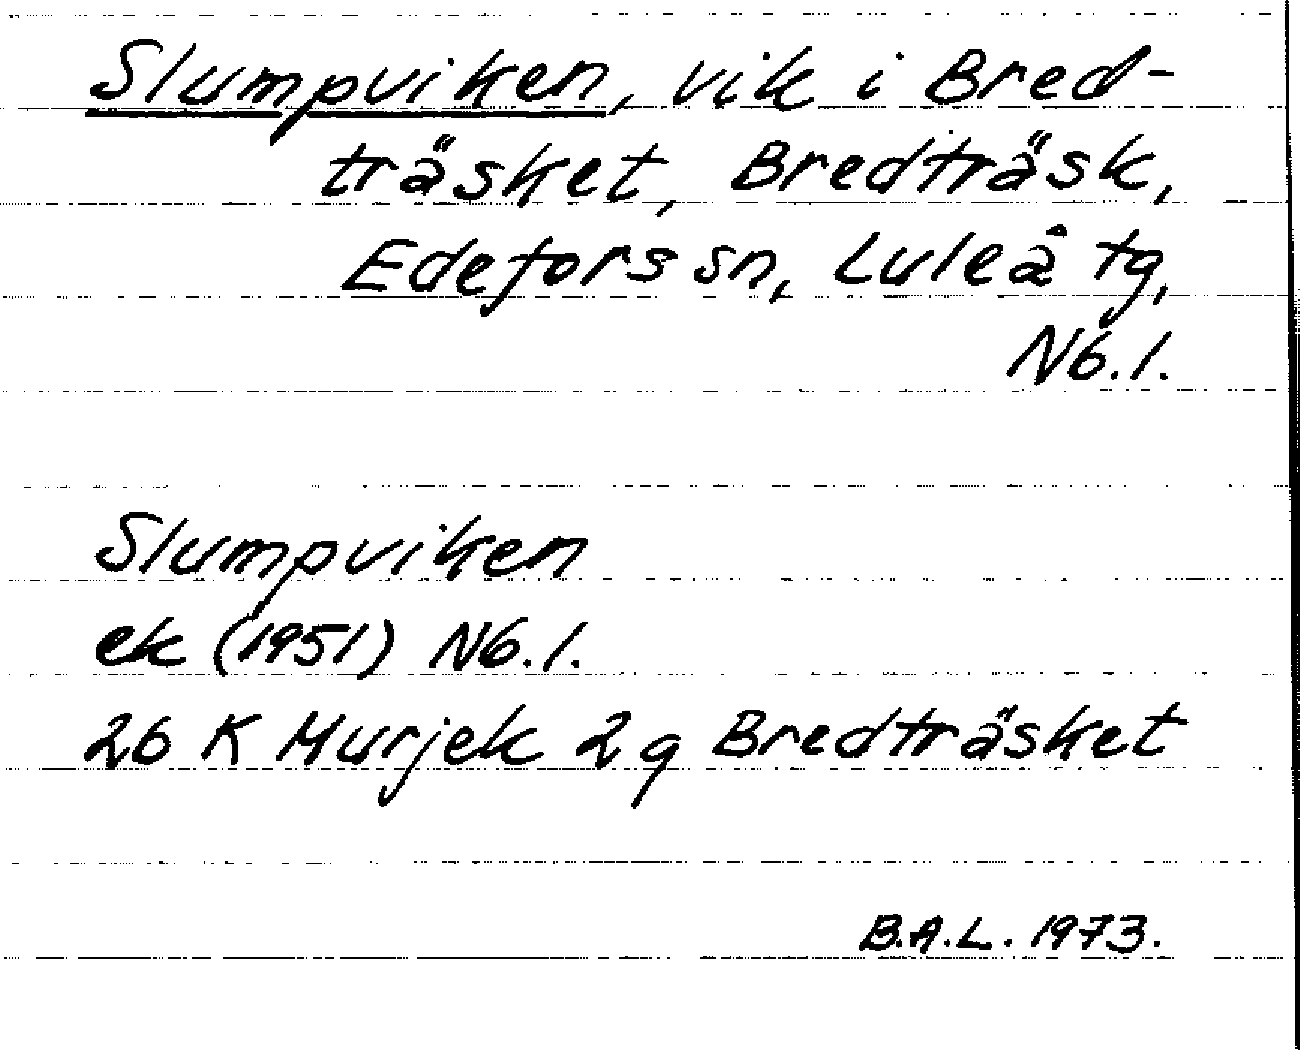 Slumpviken, vik i Bred-
träsket, Bredträsk,
Edefors sn, Luleå tg,
Nb.l.
Slumpviken
ek (1951) Nb.l.
26 K Murjek 2g Bredträsket
B.A.L. 1973.